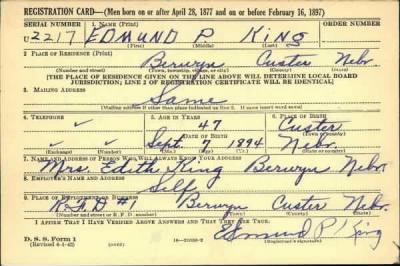 REGISTRATION CARD—(Men born on or after April 28, 1877 and on or before February 16, 1897)
SERIAL NUMBER 1. NAME (Print) ORDER NUMBER
U 2217 EDMUND P King
(First) (Middle) (Last)
2. PLACE OF RESIDENCE (Print)
Berwyn Custer Nebr.
(Number and street) (Town, township, village, or city) (County) (State)
[THE PLACE OF RESIDENCE GIVEN ON THE LINE ABOVE WILL DETERMINE LOCAL BOARD
JURISDICTION; LINE 2 OF REGISTRATION CERTIFICATE WILL BE IDENTICAL]
3. MAILING ADDRESS
Same
[Mailing address if other than place indicated on line 2. If same insert word same]
4. TELEPHONE 5. AGE IN YEARS 6. PLACE OF BIRTH
✓ 47 Custer
DATE OF BIRTH (Town or county)
✓ ✓ Sept. 7 1894 Nebr.
(Exchange) (Number) (Mo.) (Day) (Yr.) (State or country)
7. NAME AND ADDRESS OF PERSON WHO WILL ALWAYS KNOW YOUR ADDRESS
Mrs. Edith King Berwyn Nebr.
8. EMPLOYER'S NAME AND ADDRESS
Self
9. PLACE OF EMPLOYMENT OR BUSINESS
R.F.D #1 Berwyn Custer Nebr.
(Number and street or R. F. D. number) (Town) (County) (State)
I AFFIRM THAT I HAVE VERIFIED ABOVE ANSWERS AND THAT THEY ARE TRUE.
D. S. S. Form 1
(Revised 4-1-42) Edmund P King